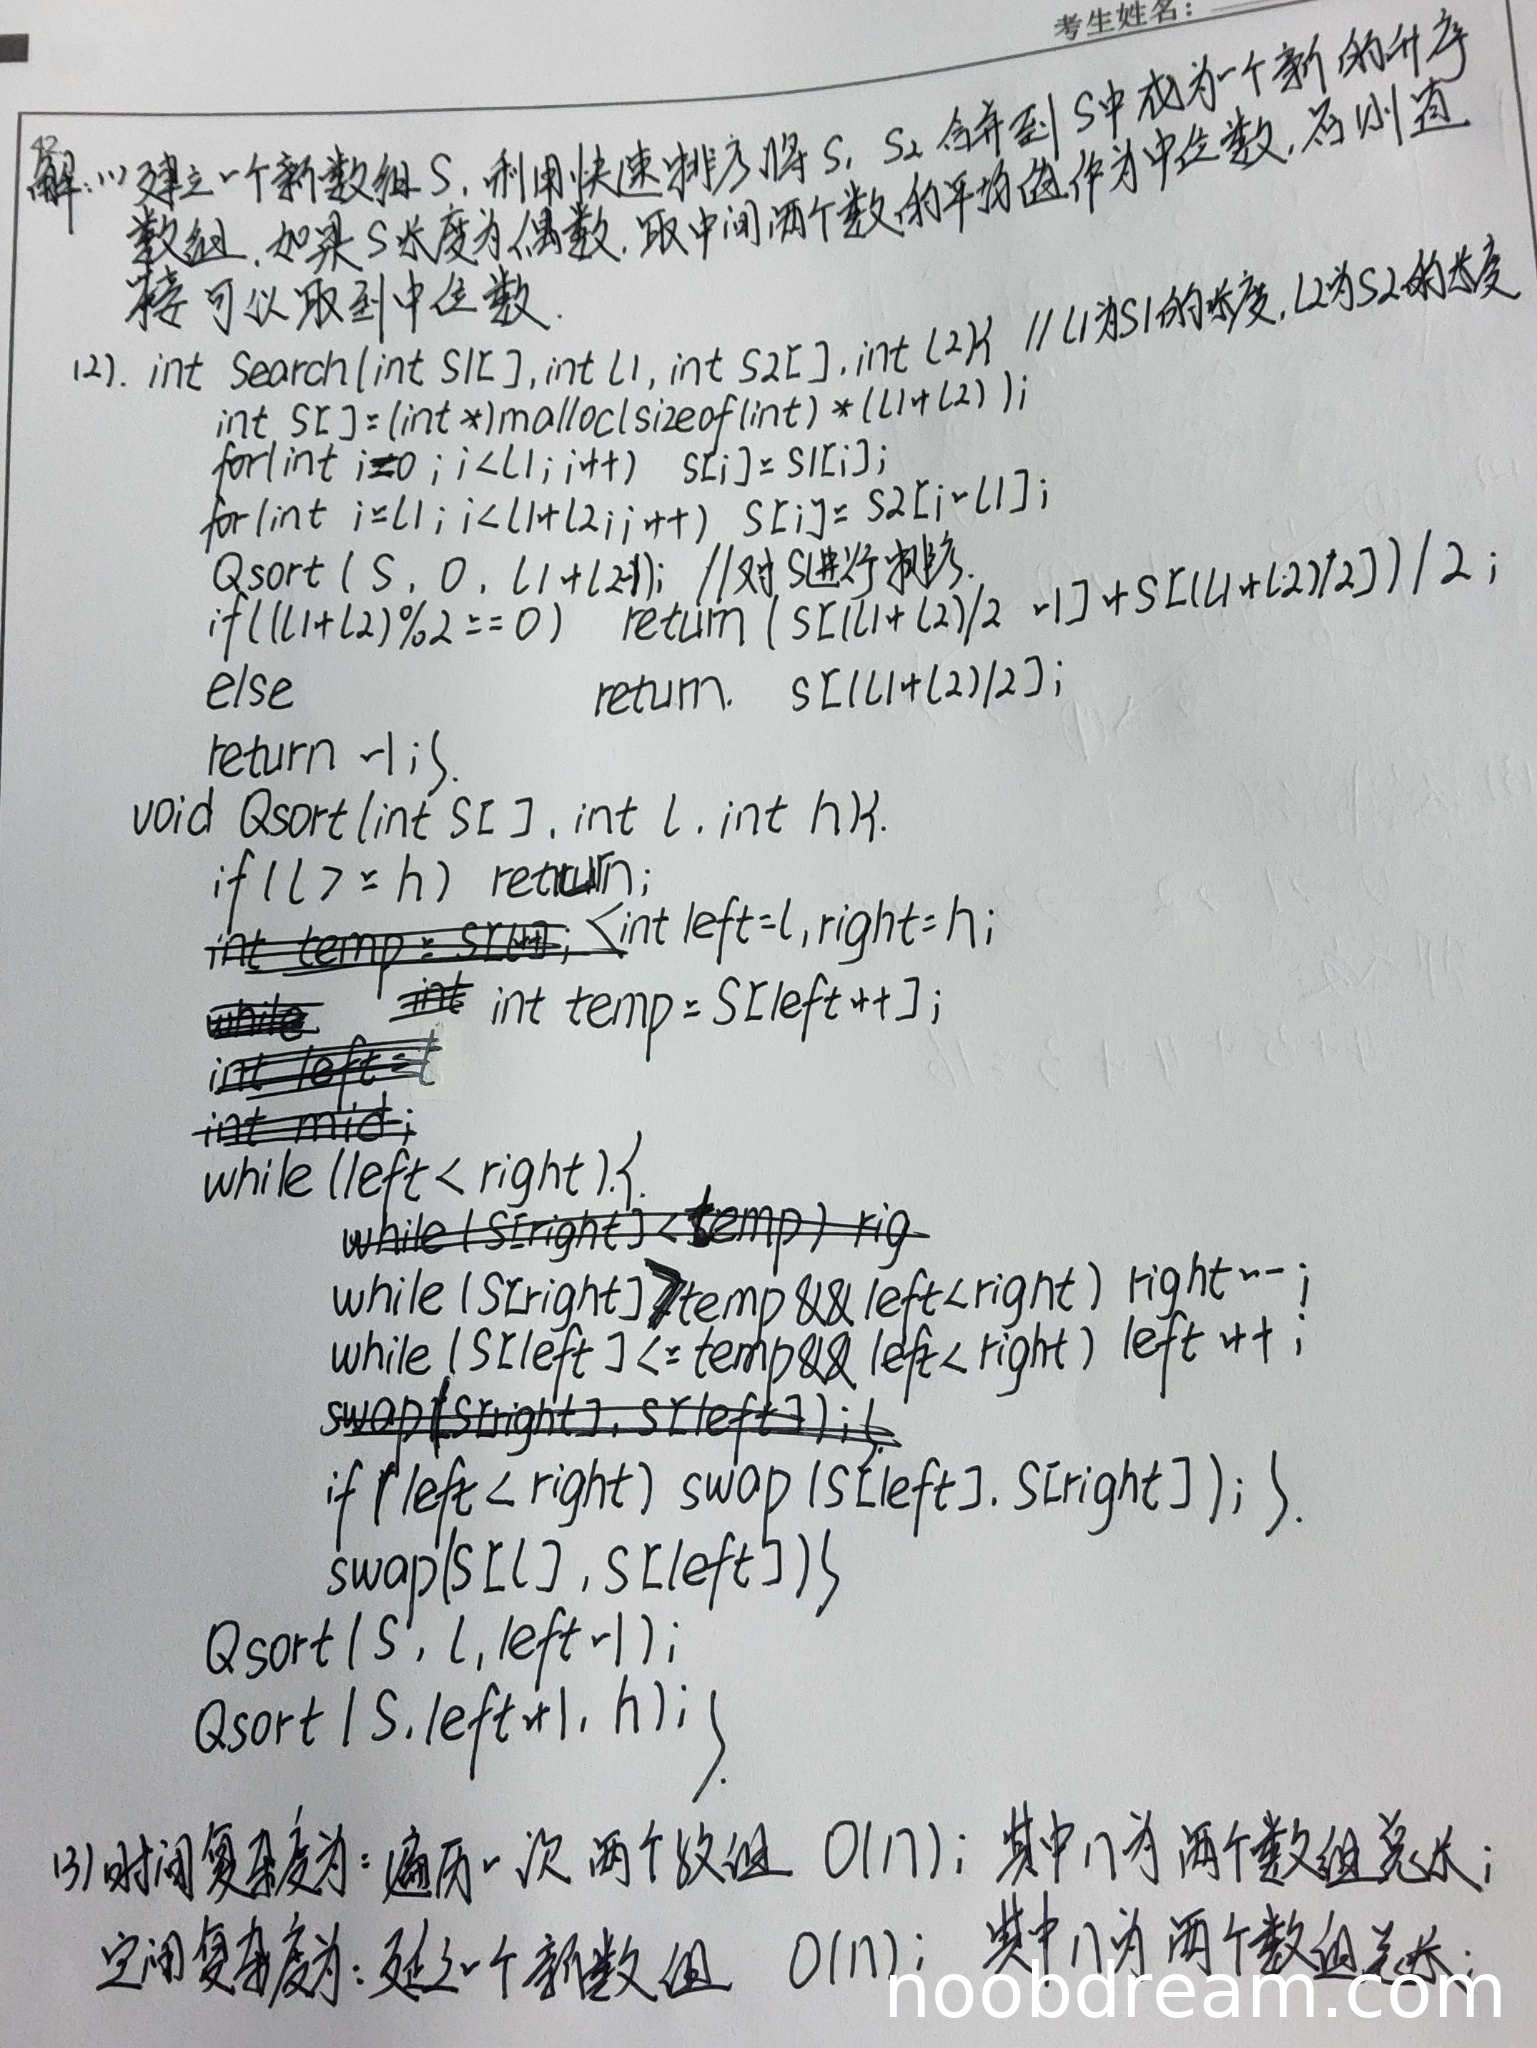 考生姓名：
42.
解：(1) 建立一个新数组S，利用快速排序将S1 S2合并到S中成为一个新的升序
数组，如果S长度为偶数，取中间两个数的平均值作为中位数，否则直
接可以取到中位数.
(2). int Search(int S1[], int L1, int S2[], int L2){ //L1为S1的长度, L2为S2的长度
int S[]=(int*)malloc(sizeof(int)*(L1+L2));
for(int i=0; i<L1; i++) S[i]=S1[i];
for(int i=L1; i<L1+L2; i++) S[i]=S2[i-L1];
Qsort(S, 0, L1+L2-1); //对S进行排序.
if((L1+L2)%2==0) return (S[(L1+L2)/2 -1]+S[(L1+L2)/2])/2;
else return. S[(L1+L2)/2];
return -1;}.
void Qsort(int S[], int l, int h){.
if(l>=h) return;
int left=l, right=h;
int int temp=S[left++];
while
int left=l
int mid;
while(left<right).{.
while(S[right]<temp) rig
while(S[right]>temp&&left<right) right--;
while(S[left]<=temp&&left<right) left++;
swap(S[right], S[left]);}.
if(left<right) swap(S[left], S[right]);}.
swap(S[l], S[left])}
Qsort(S, l, left-1);
Qsort(S, left+1, h);}.
(3)时间复杂度为：遍历一次两个数组 O(n)；其中n为两个数组总长；
空间复杂度为：建立一个新数组 O(n)；其中n为两个数组总长；
noobdream.com